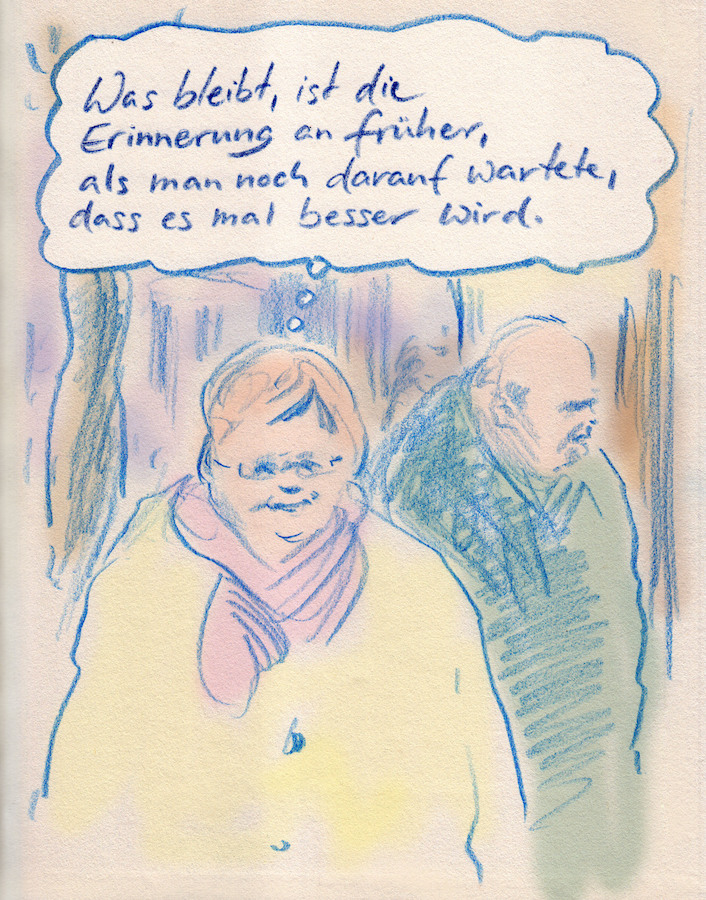 Was bleibt, ist die
Erinnerung an früher,
als man noch darauf wartete,
dass es mal besser wird.